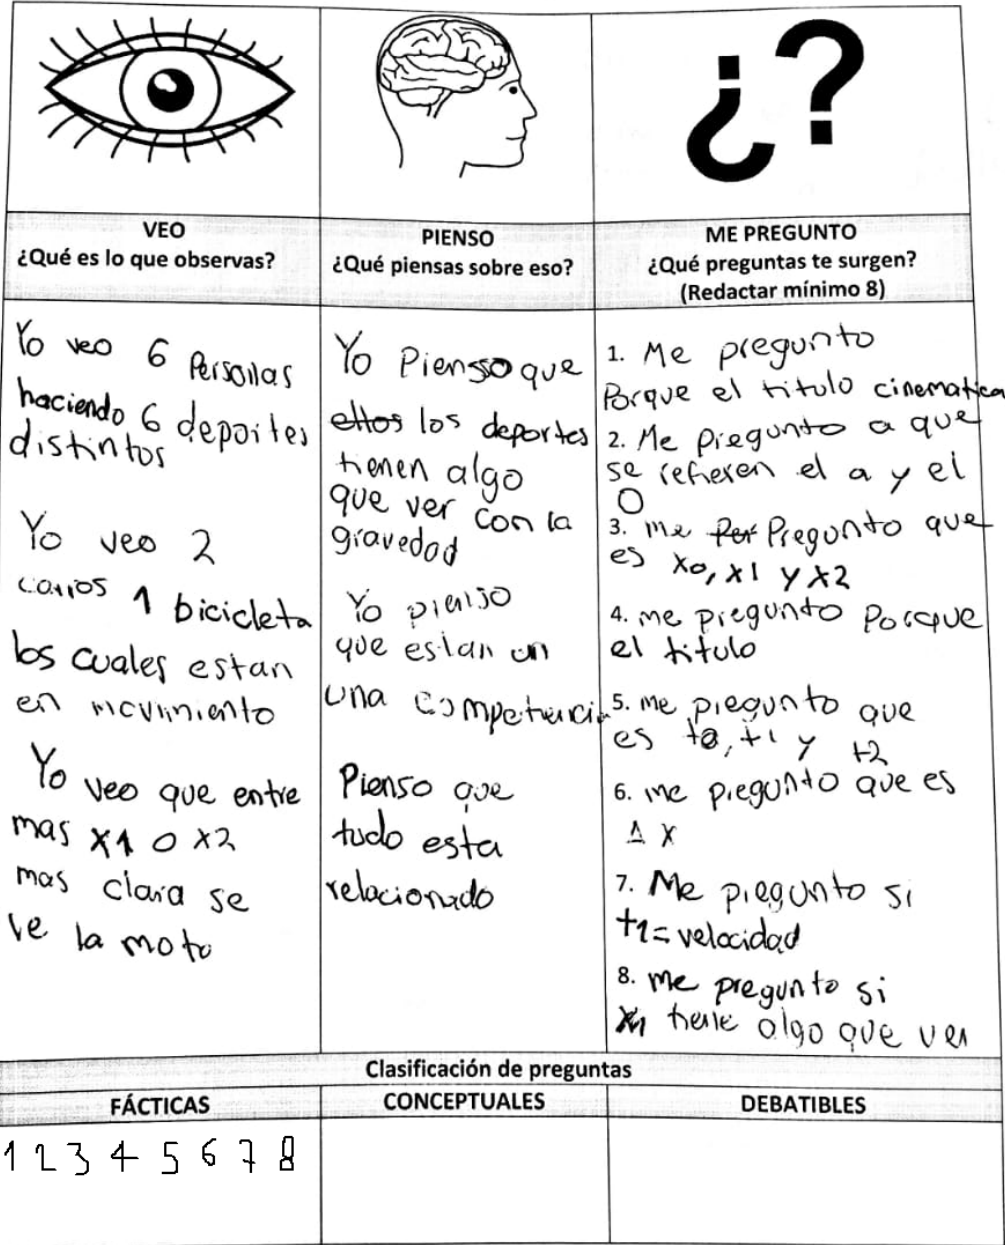 ¿?
VEO
¿Qué es lo que observas?
PIENSO
¿Qué piensas sobre eso?
ME PREGUNTO
¿Qué preguntas te surgen?
(Redactar mínimo 8)
Yo veo 6 Personas
haciendo 6 deportes
distintos
Yo veo 2
carros 1 bicicleta
los cuales estan
en movimiento
Yo veo que entre
mas x1 o x2
mas clara se
ve la moto
Yo Pienso que
ellos los deportes
tienen algo
que ver con la
gravedad
Yo pienso
que estan en
una competencia
Pienso que
todo esta
relacionado
1. Me pregunto
Porque el titulo cinematica
2. Me pregunto a que
se refieren el a y el
O
3. me Por Pregunto que
es x0, x1 y x2
4. me pregunto Porque
el titulo
5. me pregunto que
es t0, t1 y t2
6. me pregunto que es
Δ x
7. Me pregunto si
t1 = velocidad
8. me pregunto si
x1 tiene algo que ver
Clasificación de preguntas
FÁCTICAS
CONCEPTUALES
DEBATIBLES
1 2 3 4 5 6 7 8